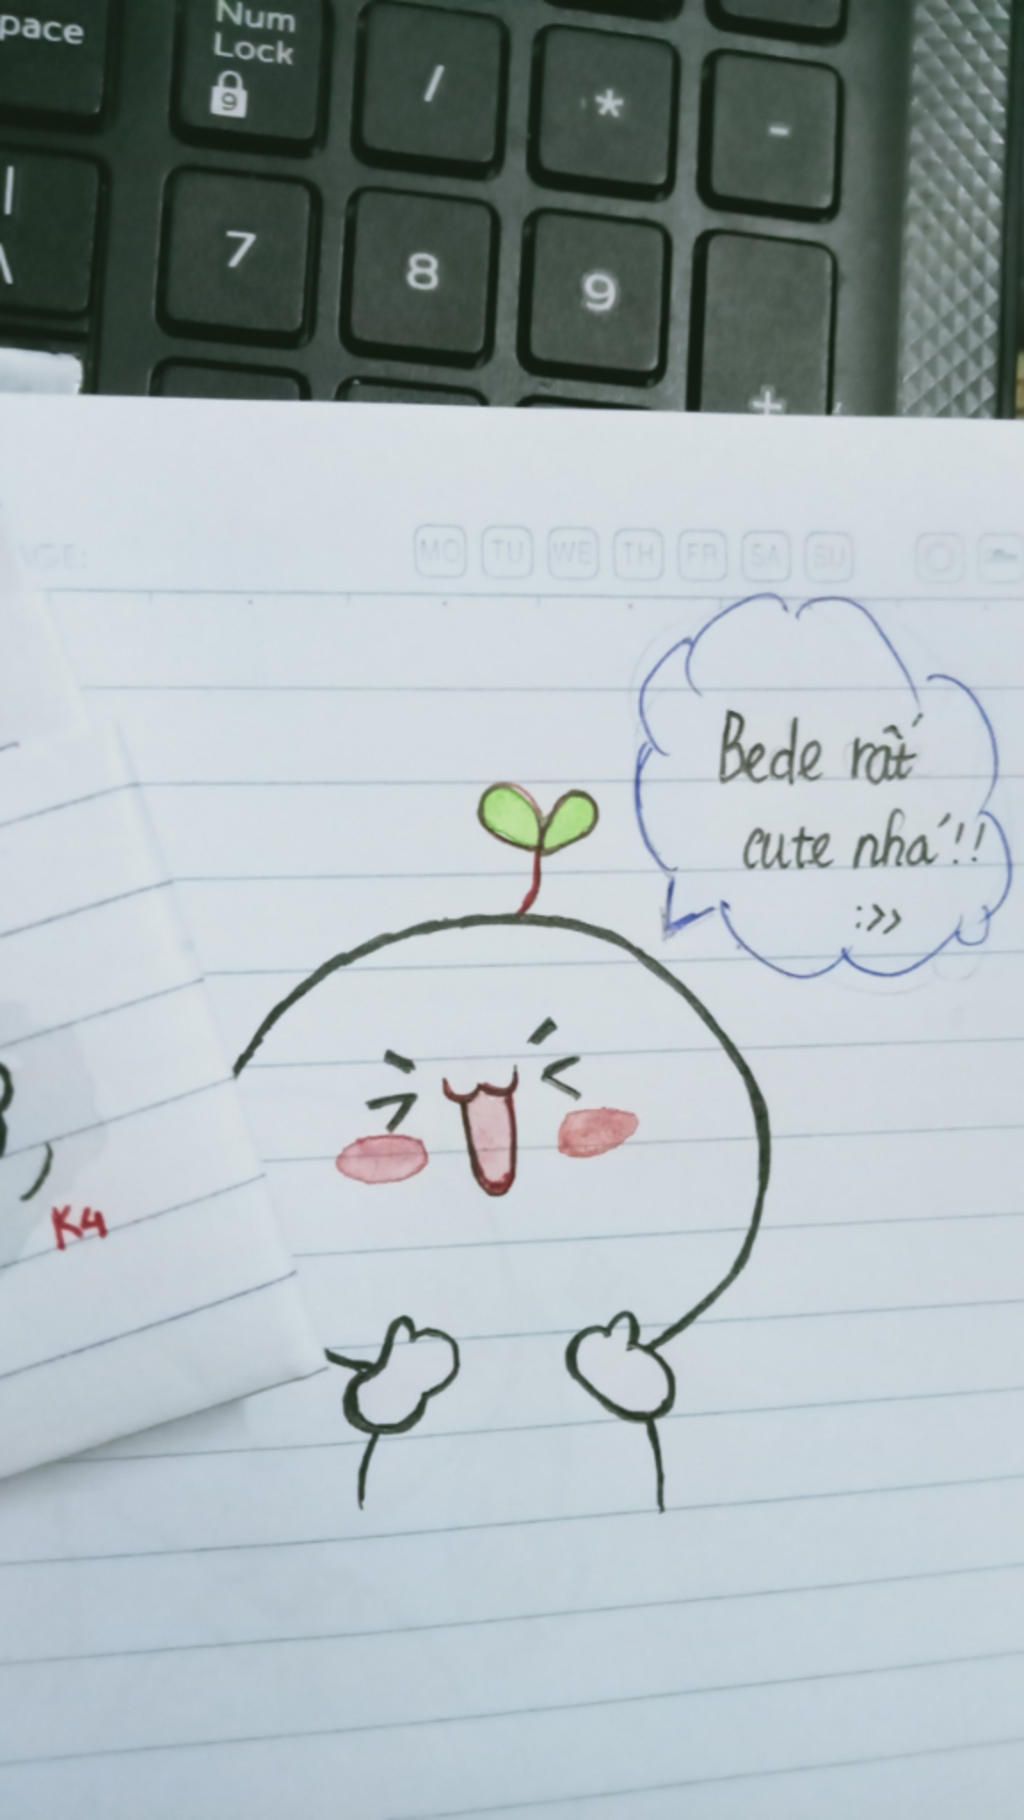 pace
Num
Lock
9
/
*
-
|
\
7
8
9
+
AGE:
MO TU WE TH FR SA SU
Bede rất
cute nhá!!
:>>
K4